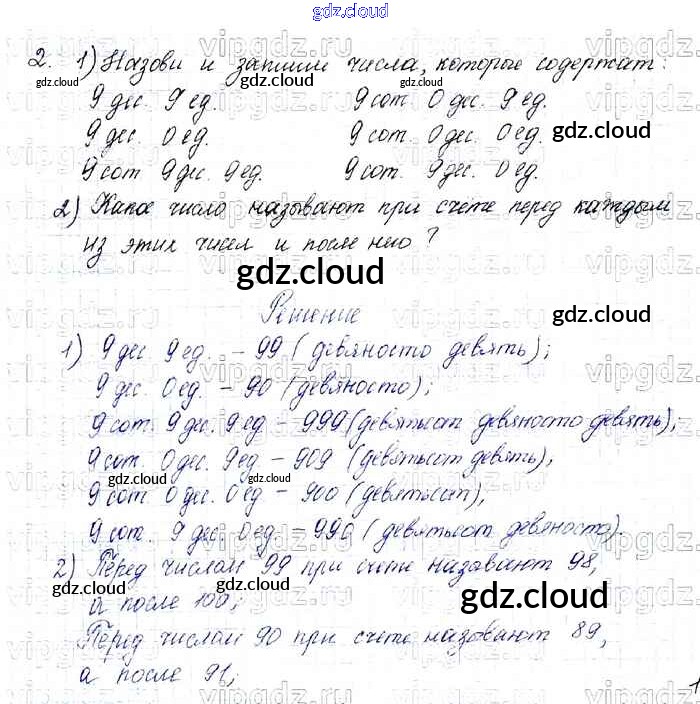 gdz.cloud
2. 1) Назови и запиши числа, которые содержат:
9 дес. 9 ед. 9 сот. 0 дес. 9 ед.
9 дес. 0 ед. 9 сот. 0 дес. 0 ед.
9 сот 9 дес. 9 ед. 9 сот. 9 дес. 0 ед.
2) Какое число называют при счете перед каждым
из этих чисел и после него?
gdz.cloud
Решение
1) 9 дес 9 ед. – 99 (девяносто девять);
9 дес. 0 ед. – 90 (девяносто);
9 сот. 9 дес. 9 ед – 999 (девятьсот девяносто девять);
9 сот. 0 дес. 9 ед – 909 (девятьсот девять),
9 сот 0 дес. 0 ед – 900 (девятьсот),
9 сот. 9 дес. 0 ед. – 990 (девятьсот девяносто).
2) Перед числом 99 при счете называют 98,
а после 100;
Перед числом 90 при счете называют 89,
а после 91;
1